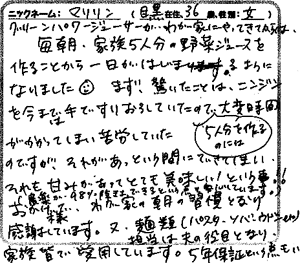 ニックネーム: マリリン (目黒在住, 36歳, 性別: 女)
グリーンパワージューサーがわが家にやってきてからは、
毎朝、家族5人分の野菜ジュースを
作ることから一日がはじまるように
なりました☺ まず、驚いたことは、ニンジン
を今までは手ですりおろしていたので、大変時間
がかかってしまい苦労していた
5人分を作る
のには
のですが それがあっという間にできてしまい、
それも 甘みがあってとても美味しい!という事!!
おかげ様で、わが家の朝の習慣となり
感謝しています。又、麺類(パスタ・ソバ・ウドンなど)
担当は夫の役目となり、
家族皆で愛用しています。5年保証という点もい